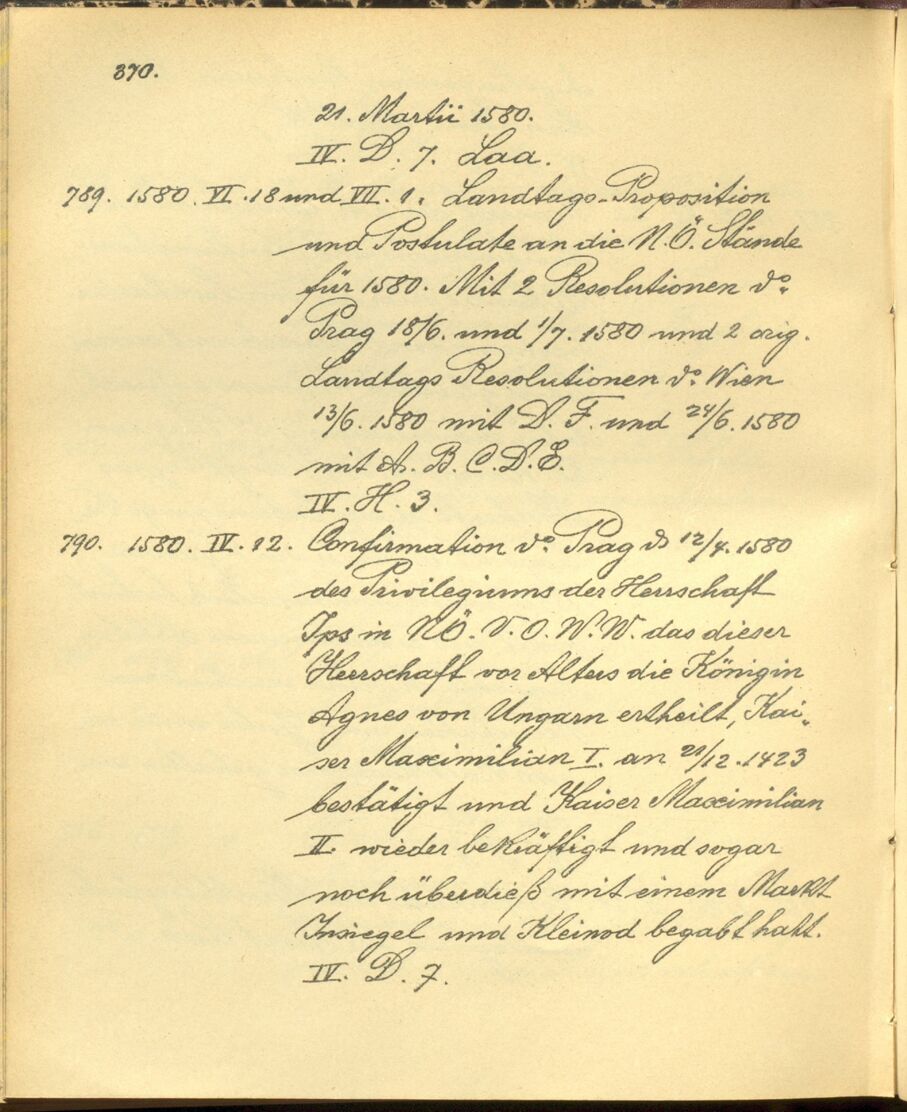 370.
21. Martii 1580.
IV. D. 7. Laa.
789. 1580. VI. 18 und VII. 1. Landtags-Proposition
und Postulate an die N.Ö. Stände
für 1580. Mit 2 Resolutionen do.
Prag 18/6. und 1/7. 1580 und 2 orig.
Landtags Resolutionen do. Wien
13/6. 1580 mit D. F. und 24/6. 1580
mit A. B. C. D. E.
IV. H. 3.
790. 1580. IV. 12. Confirmation do. Prag 12/4. 1580
des Privilegiums der Herrschaft
Ips in NÖ. V. O. W. W. das dieser
Herrschaft vor Alters die Königin
Agnes von Ungarn ertheilt, Kai-
ser Maximilian I. an 21/12. 1423
bestätigt und Kaiser Maximilian
II. wieder bekräftigt und sogar
noch überdieß mit einem Markt
Insiegel und Kleinod begabt hatt.
IV. D. 7.